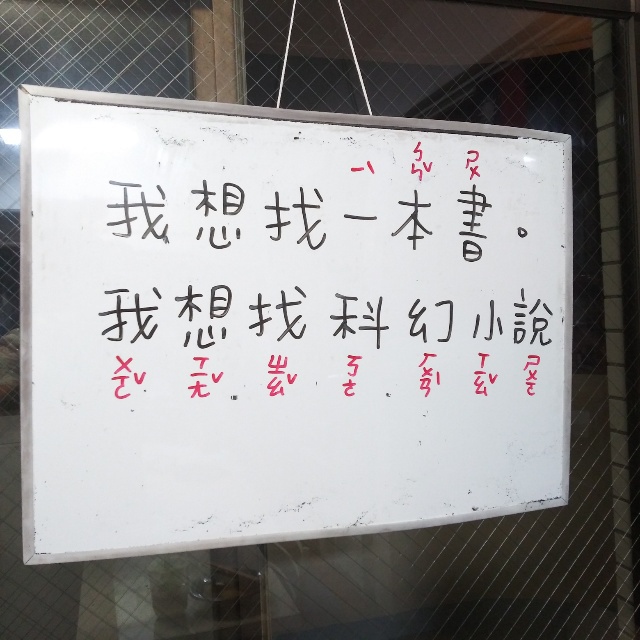 ㄧˋ ㄅㄣˇ ㄕㄨ
我想找一本書。
我想找科幻小說
ㄨㄛˇ ㄒㄧㄤˇ ㄓㄠˇ ㄎㄜ ㄏㄨㄢˋ ㄒㄧㄠˇ ㄕㄨㄛ